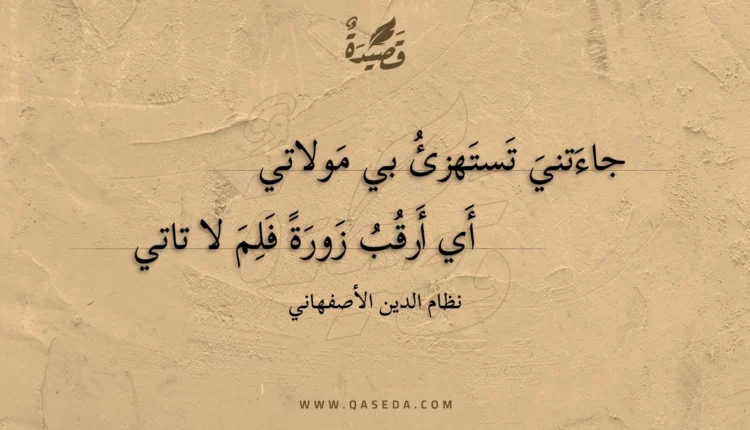 قَصِيدَةٌ
جاءَتنيَ تَستَهزئُ بي مَولاتي
أَي أَرقُبُ زَورَةً فَلِمَ لا تاتي
نظام الدين الأصفهاني
WWW.QASEDA.COM